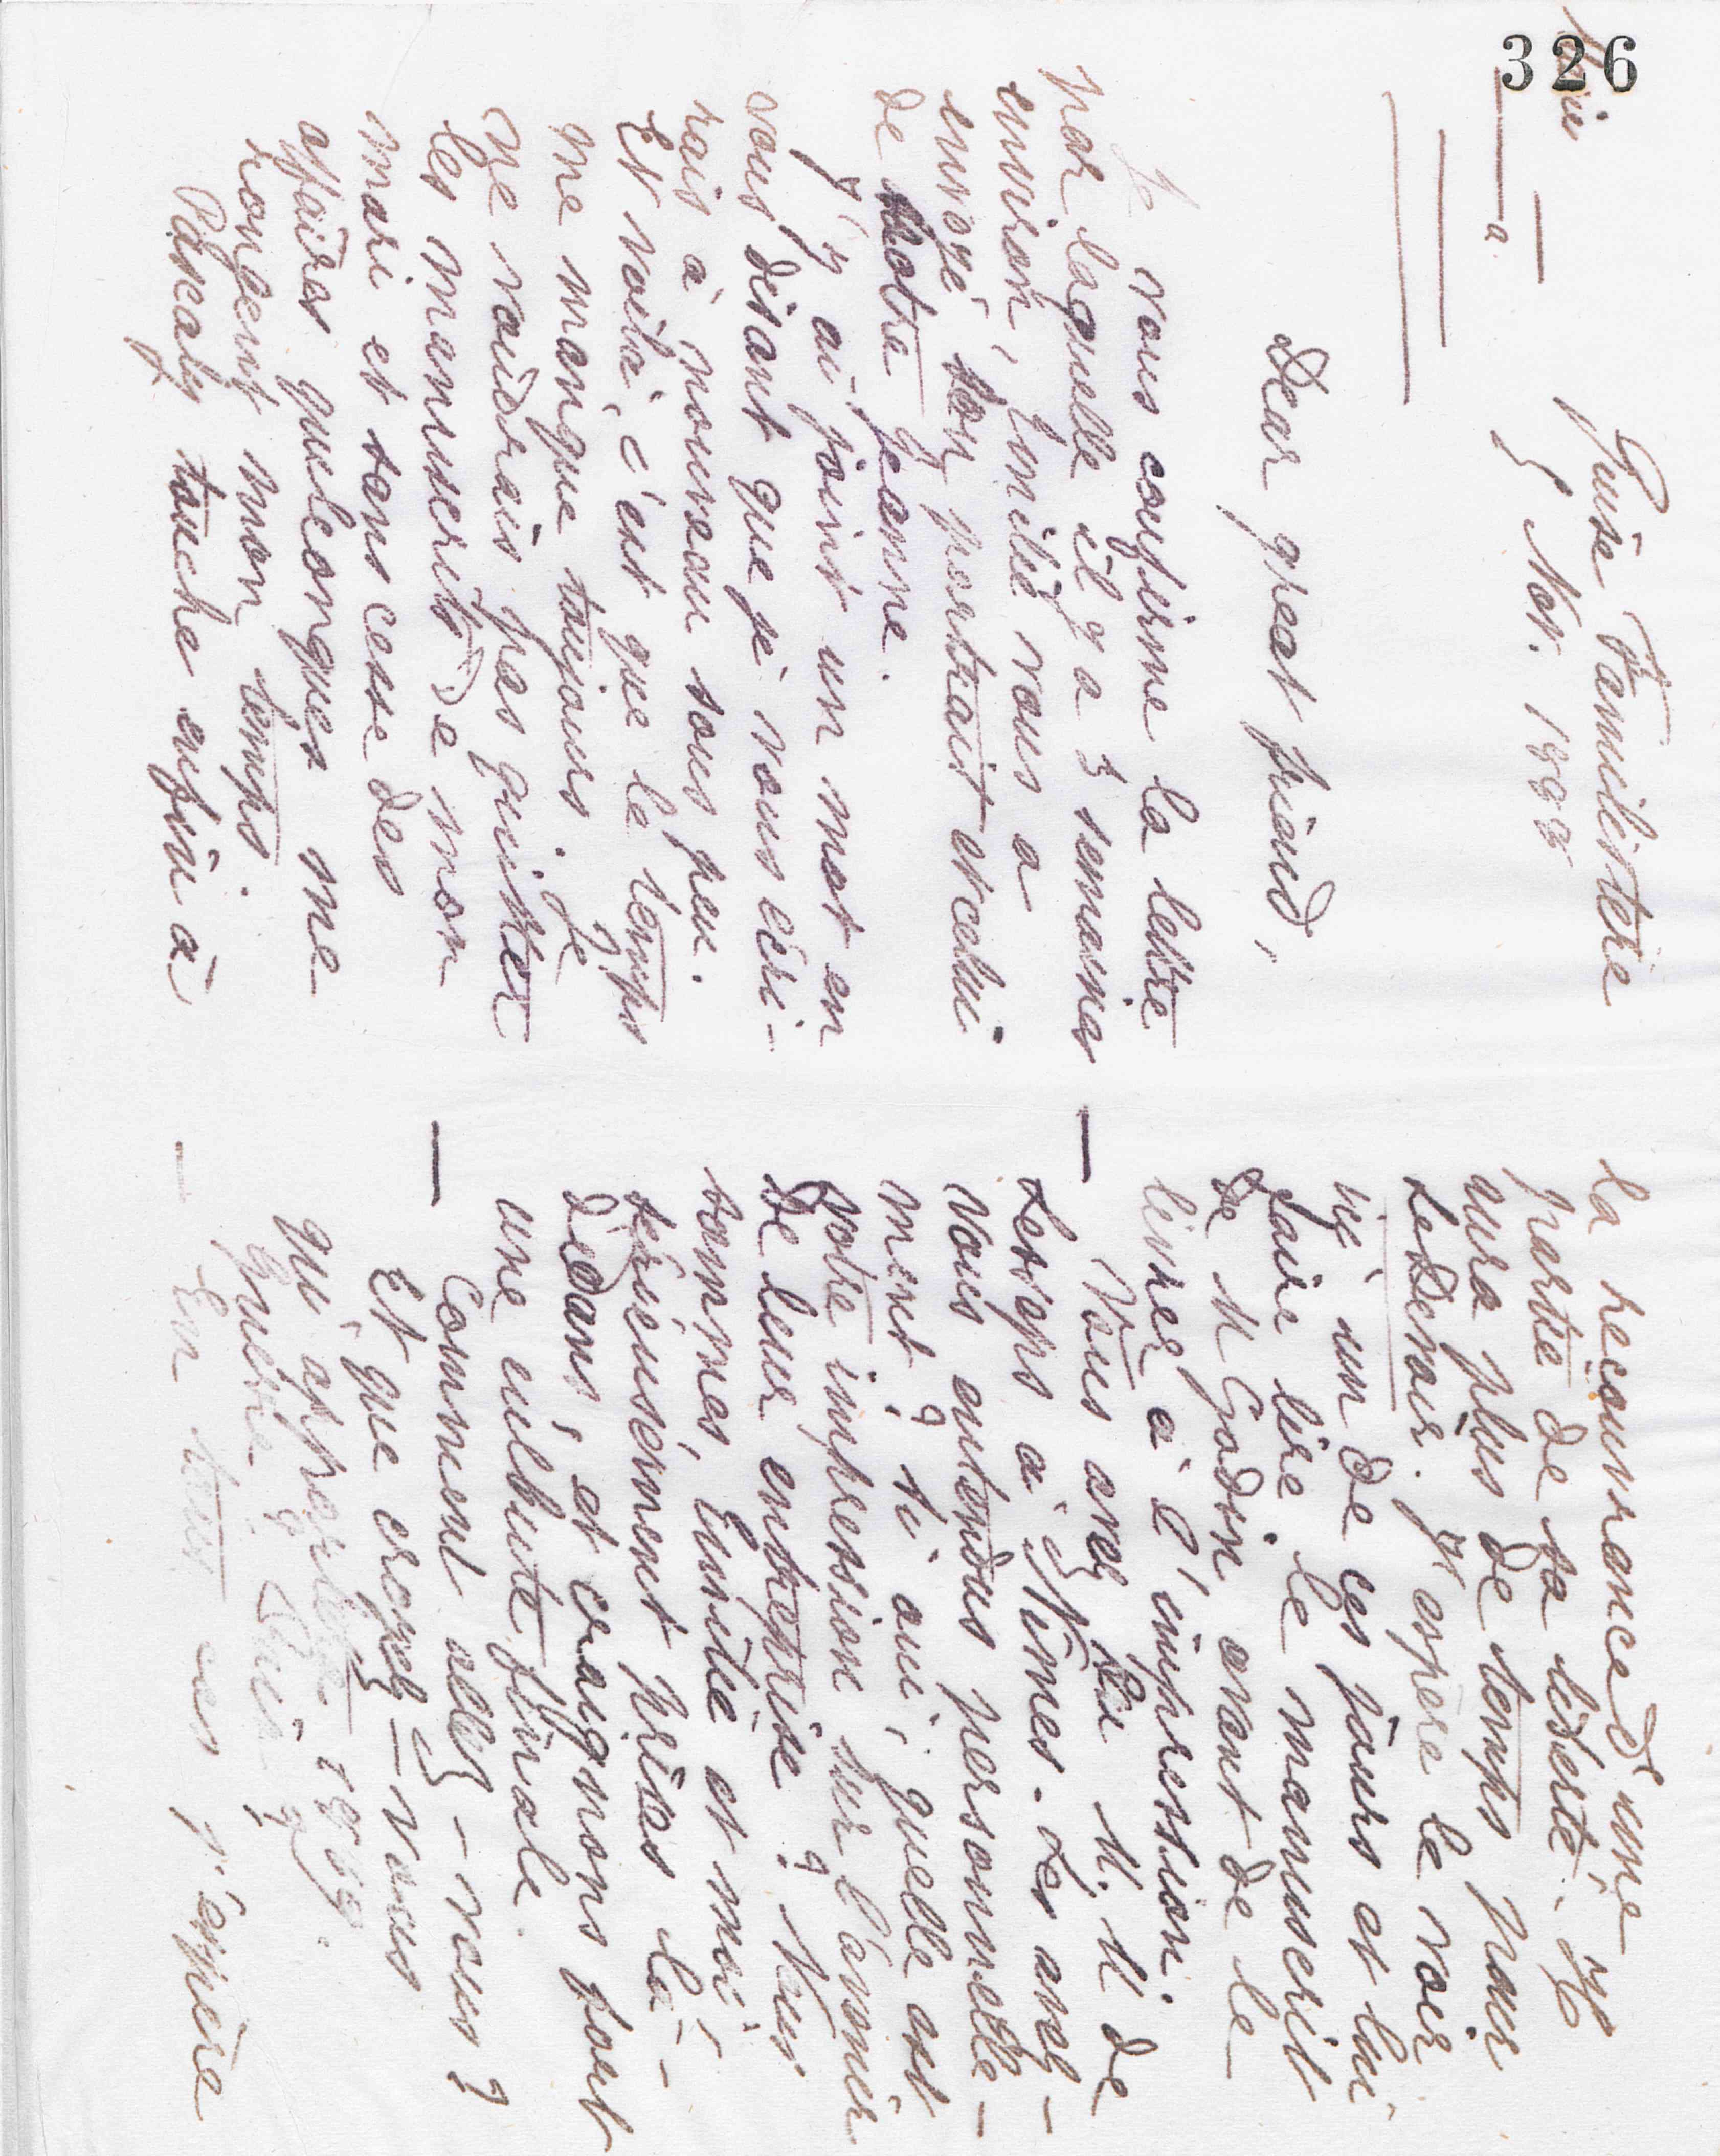 326
Guise Familistère
5 Nov. 1888
a.
Dear great friend,
Je vous confirme la lettre
par laquelle il y a 3 semaines
environ, Émilie vous a
envoyé son portrait et celui
de notre Jeanne.
J'y ai joint un mot en
vous disant que je vous écri-
rais à nouveau sous peu.
Et voilà, c'est que le temps
me manque toujours. Je
ne voudrais pas quitter
les manuscrits de mon
mari et sans cesse des
affaires quelconques me
rongent mon temps.
Pascaly touche enfin à
la recouvrance d'une
partie de sa liberté. Il
aura plus de temps pour
le Devoir. J'espère le voir
ici un de ces jours et lui
faire lire le manuscrit
de M Godin avant de le
livrer à l'impression.
Vous avez eu M. M de
Lesseps à Nîmes. Les avez-
vous entendus personnelle-
ment ? Si oui, quelle est
votre impression sur l'avenir
de leur entreprise ? Nous
sommes, Émilie et moi,
sérieusement prises là-
dedans, et craignons fort
une culbute finale.
Comment allez-vous ?
Et que croyez-vous
qu'apportera 1889.
Guerre ? Paix ?
En tous cas j'espère